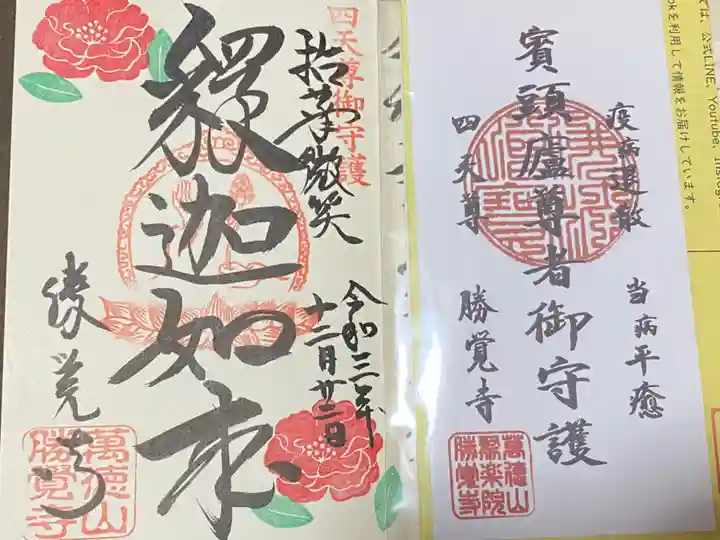 四天尊御守護
拈華微笑
釋迦如来
令和三年
十二月廿二日
勝覚寺
萬徳山
勝覺寺
疫病退散
賓頭盧尊者御守護
四天尊
当病平癒
勝覚寺
萬徳山
聚楽院
勝覺寺
は、公式LINE、Youtube、Instagr
okを利用して情報をお届けしています。